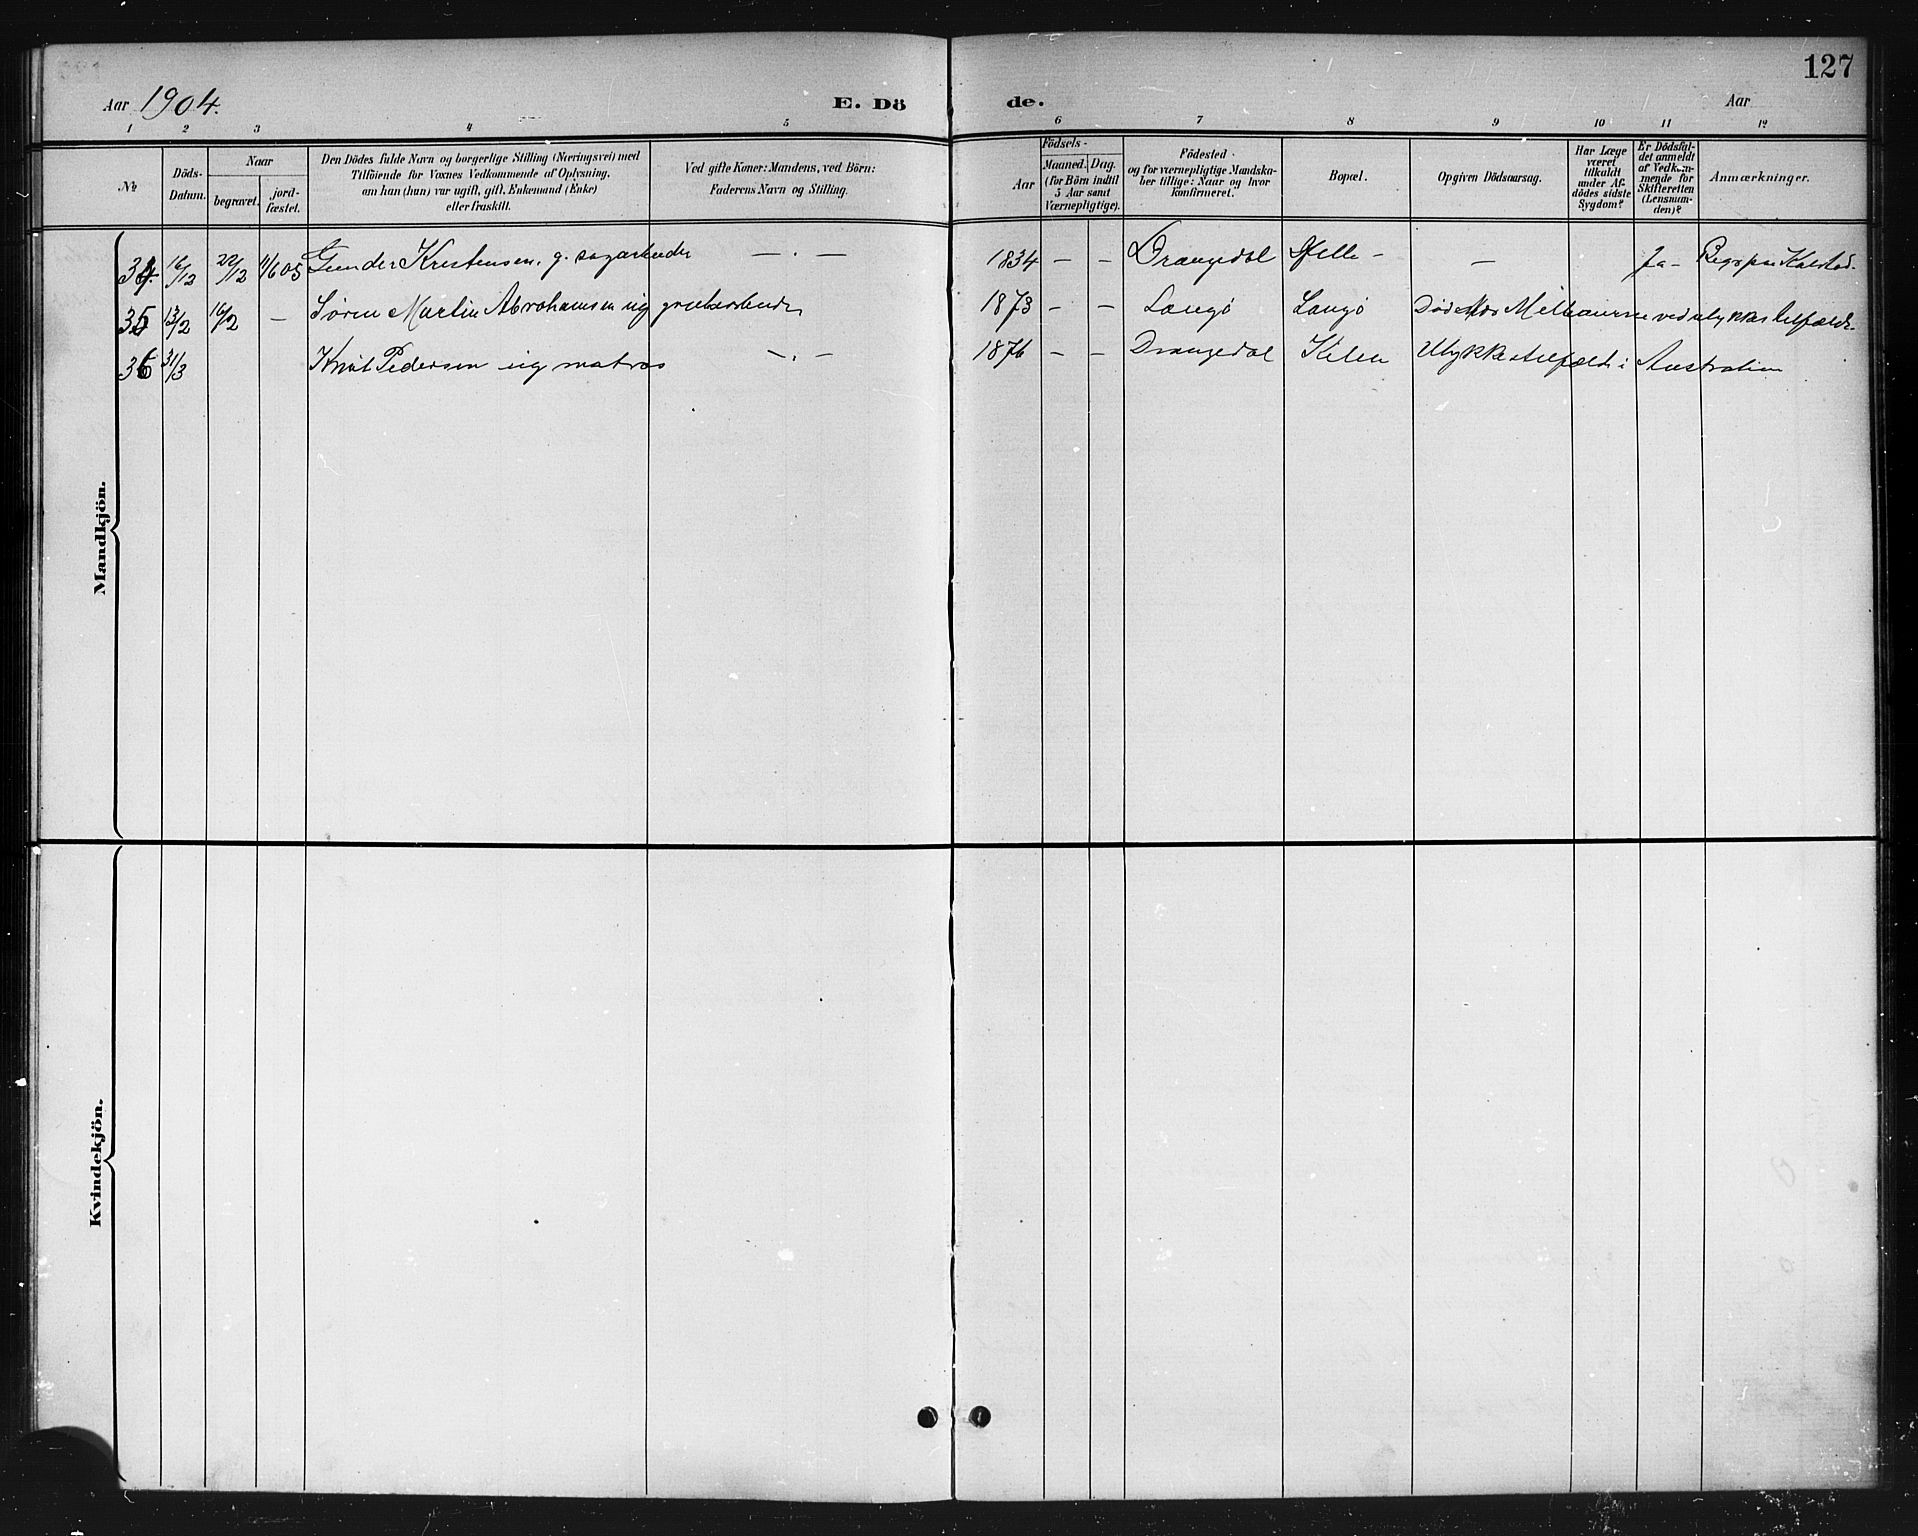 127
Aar 1904. E. Dö de. Aar
1 2 3 4 5 6 7 8 9 10 11 12
№
Döds-Datum.
Naar
begravet.
jord-fæstet.
Den Dödes fulde Navn og borgerlige Stilling (Næringsvei) med
Tilföiende for Voxnes Vedkommende af Oplysning,
om han (hun) var ugift, gift, Enkemand (Enke)
eller fraskilt.
Ved gifte Koner: Mandens, ved Börn:
Faderens Navn og Stilling.
Födsels-
Aar
Maaned. Dag.
(for Börn indtil
5 Aar samt
Værnepligtige).
Födested
og for værnepligtige Mandska-
ber tillige: Naar og hvor
konfirmeret.
Bopæl.
Opgiven Dödsaarsag.
Har Læge
været
tilkaldt
under Af-
dödes sidste
Sygdom?
Er Dödsfal-
det anmeldt
af Vedkom-
mende for
Skifteretten
(Lensman-
den)?
Anmærkninger.
Mandkjön.
34. 16/12 22/12 11/6 05 Gunder Kristensen, g. sagarbeider — . — 1834 — — Drangedal Helle — — Ja —
35 13/2 16/2 — Søren Martin Abrahamsen ug grubearbeider 1873 — — Langø Langø Døde Melbourne ved ulykkestilfælde
36 31/3 Knut Pedersen ug matros — . — 1876 — — Drangedal Kilen Ulykkestilfælde i Australien
Kvindekjön.